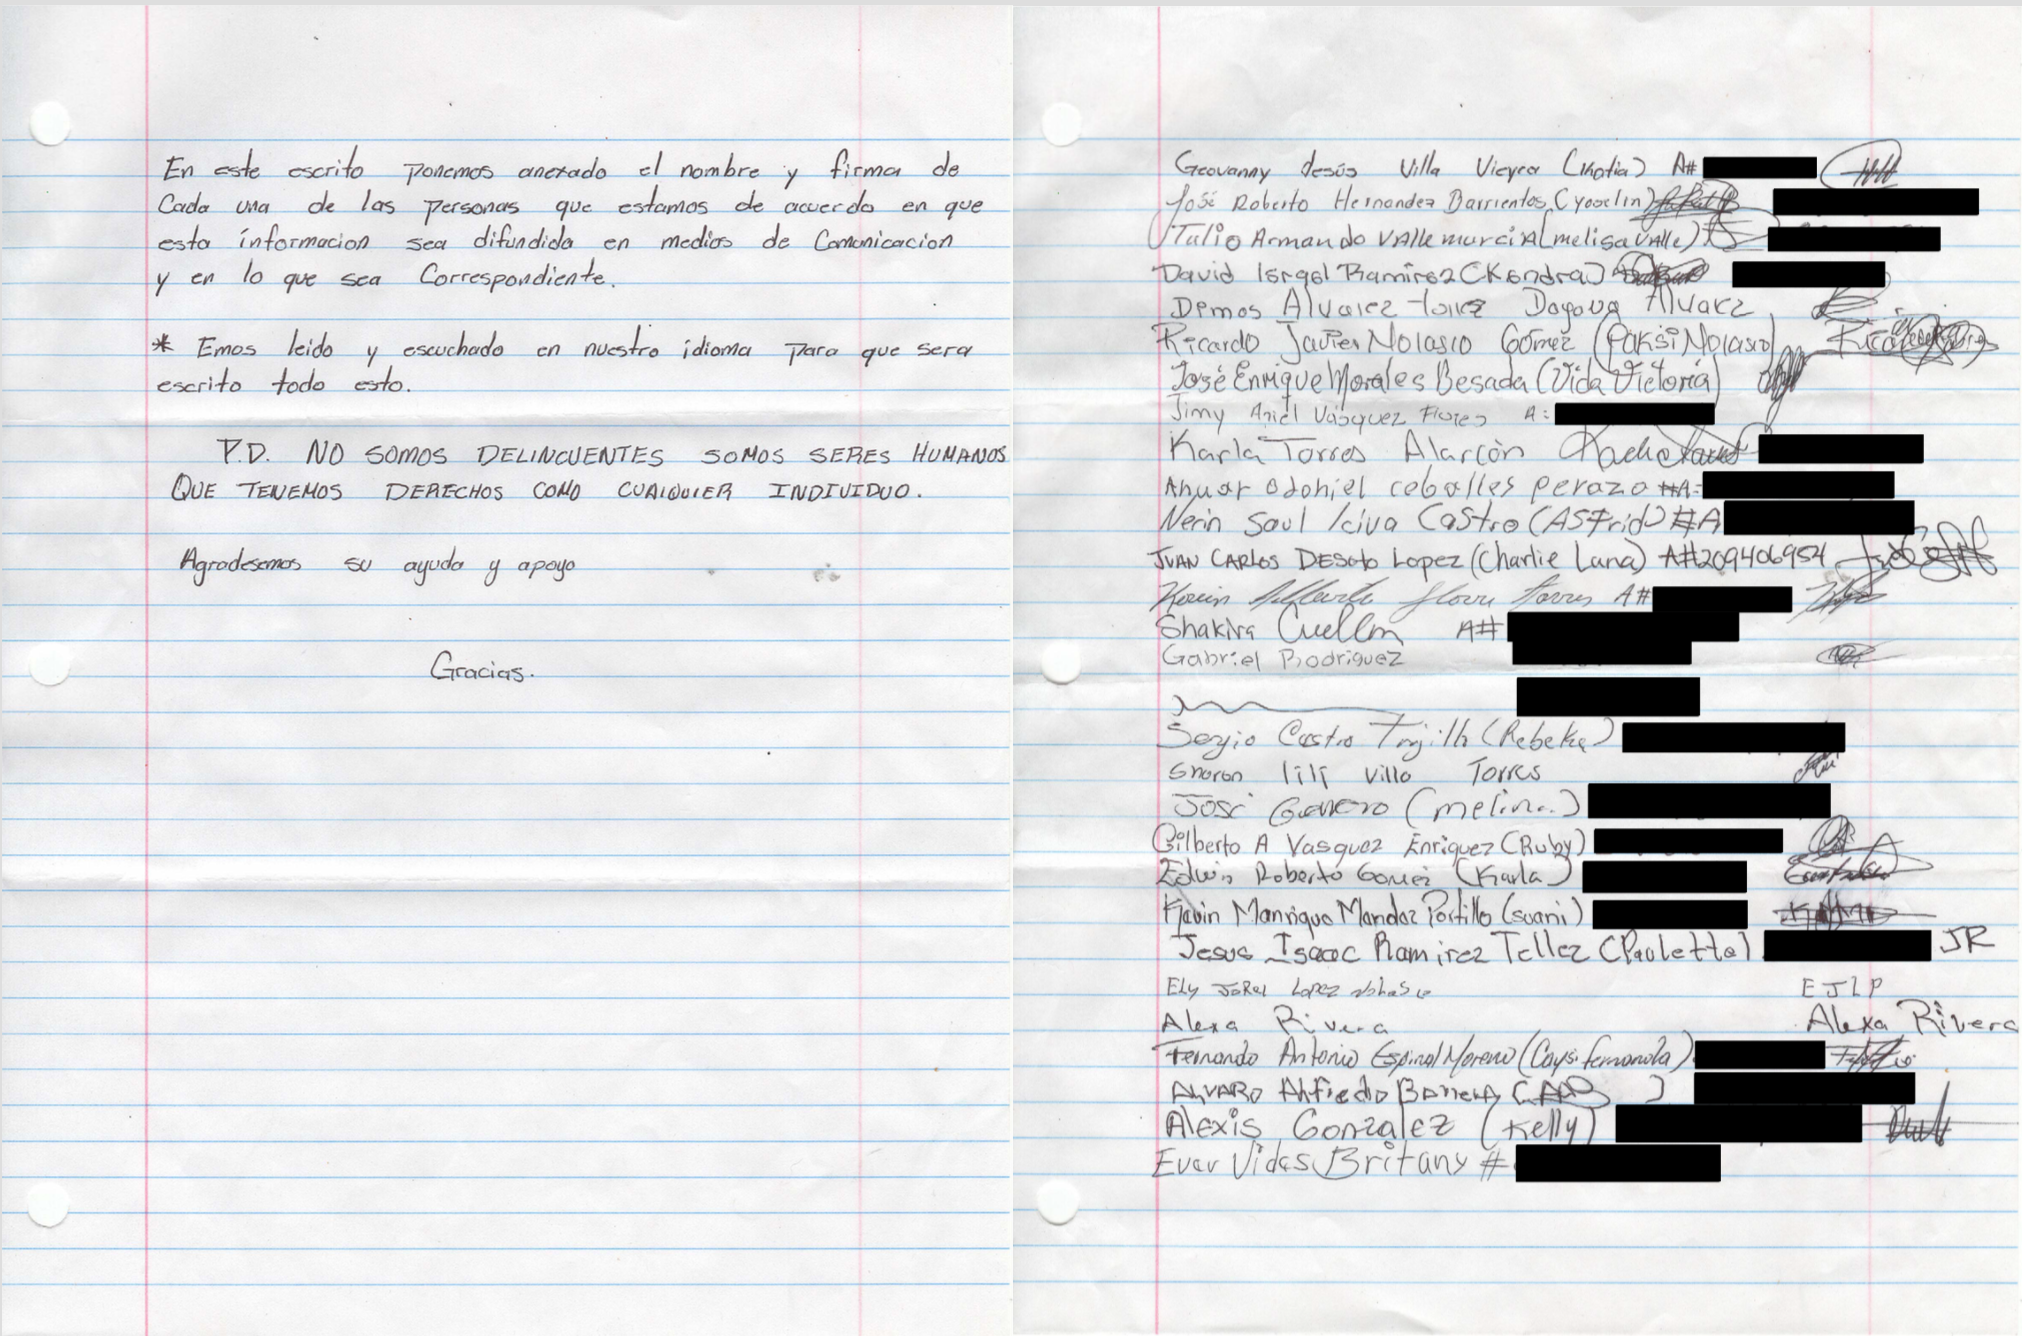 En este escrito ponemos anexado el nombre y firma de
Cada una de las personas que estamos de acuerdo en que
esta información sea difundida en medios de Comunicacion
y en lo que sea Correspondiente.
* Emos leido y escuchado en nuestro idioma para que sera
escrito todo esto.
P.D. NO SOMOS DELINCUENTES SOMOS SERES HUMANOS
QUE TENEMOS DERECHOS COMO CUALQUIER INDIVIDUO.
Agradesemos su ayuda y apoyo
Gracias.
Geovanny Jesús Villa Vieyra (Katia) A#
José Roberto Hernandez Barrientos (yoselin)
Tulio Armando VAlle murciA (melisa VAlle)
David Israel Ramirez (Kendra)
Alvarez Alvarez
Ricardo Javier Nolasco Gómez (PAKSi Nolasco)
José Enrique Morales Besada (Vida Victoria)
Jimy Ariel Vasquez Flores A:
Karla Torres Alarcòn
Anuar Odohiel ceballes perazo #A:
Nerin Saul Castro (AStrid) #A
JUAN CARLOS DESoto Lopez (Charlie Lana) A#209406954
A#
Shakira Cuellar A#
Gabriel Rodriguez
Sergio Castro (Rebeka)
Sharon lili Villa Torres
José (melin..)
Gilberto A Vasquez Enriquez (Ruby)
Edwin Roberto Gomez (Karla)
Kevin Manrique Mendez Portillo (suani)
Jesus Isaac Ramirez Tellez (Paulette) JR
Ely Lopez EJLP
Alexa Rivera Alexa Rivera
Fernando Antonio Espinal Moreno
ALVARO Alfredo Barrera
Alexis Gonzalez (Kelly)
Britany #